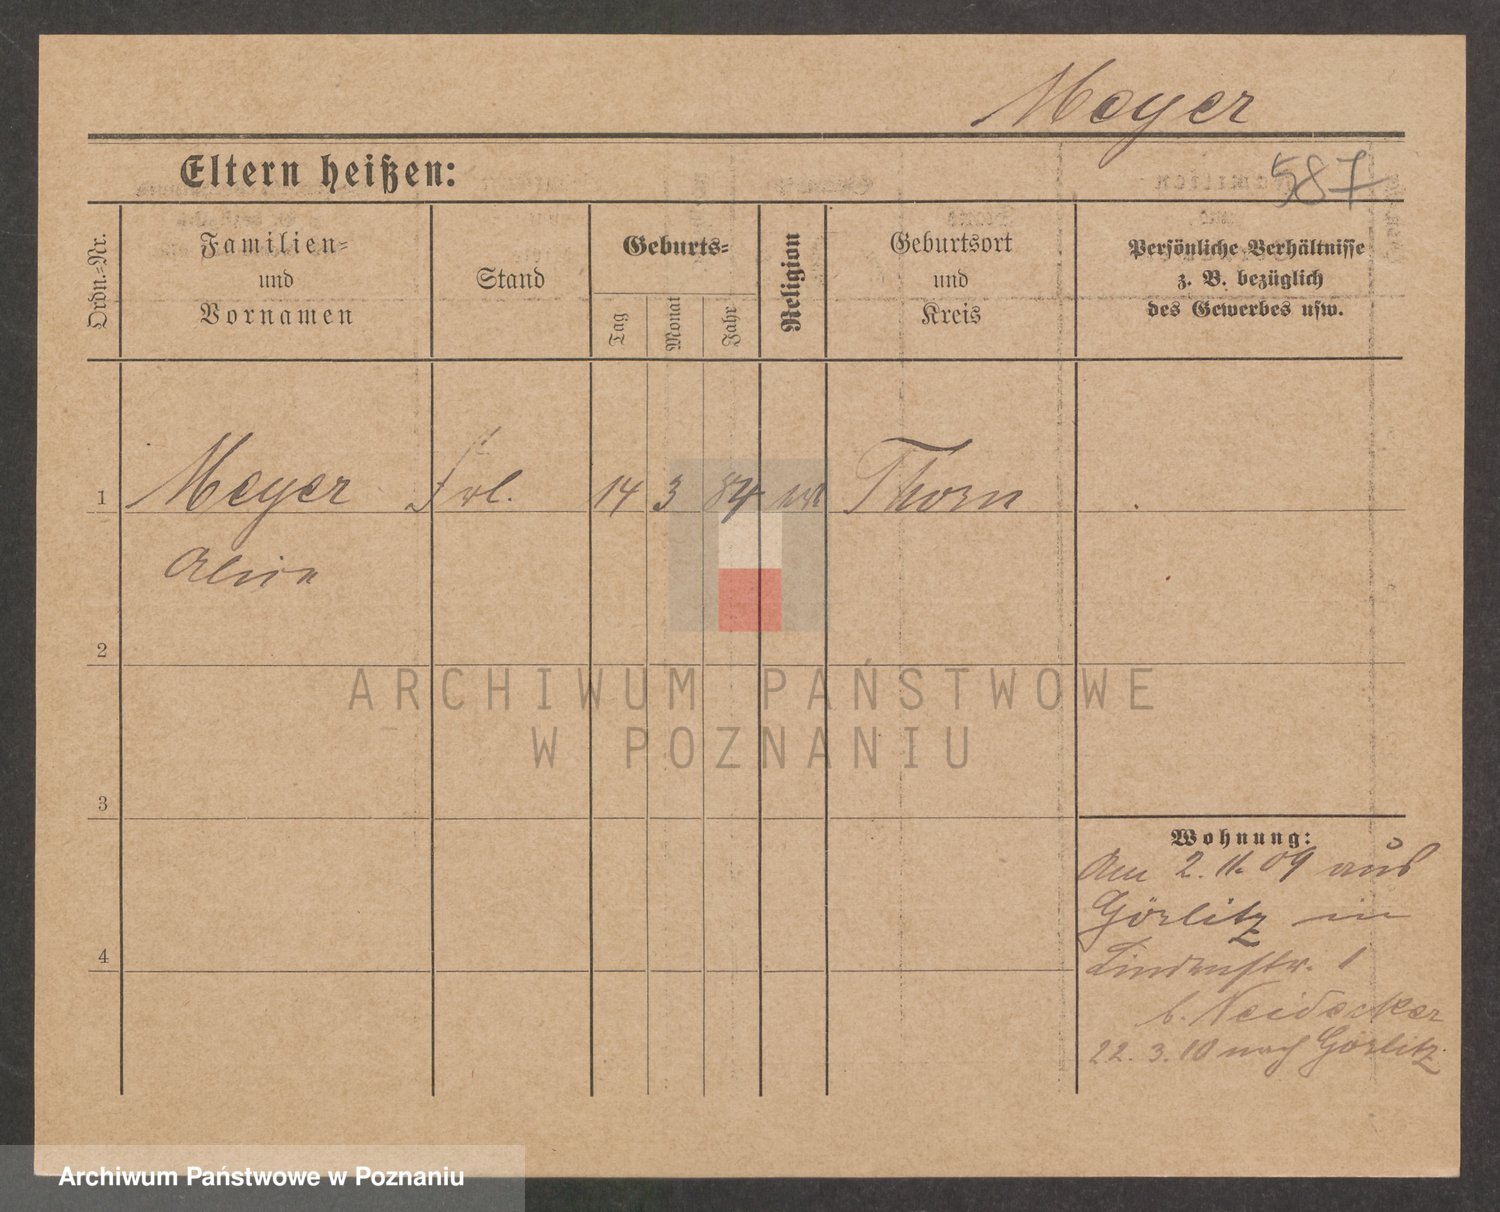 Meyer
587
Eltern heißen:
Ordn.=Nr.
Familien=
und
Vornamen
Stand
Geburts=
Tag
Monat
Jahr
Religion
Geburtsort
und
Kreis
Persönliche Verhältnisse
z. B. bezüglich
des Gewerbes usw.
1 Meyer Frl. 14 3 84 Thorn
2
3
4
Wohnung:
Am 2.11.09 aus
Görlitz in
Lindenstr. 1
b. Neidecker
22.3.10 nach Görlitz
ARCHIWUM PAŃSTWOWE
W POZNANIU
Archiwum Państwowe w Poznaniu